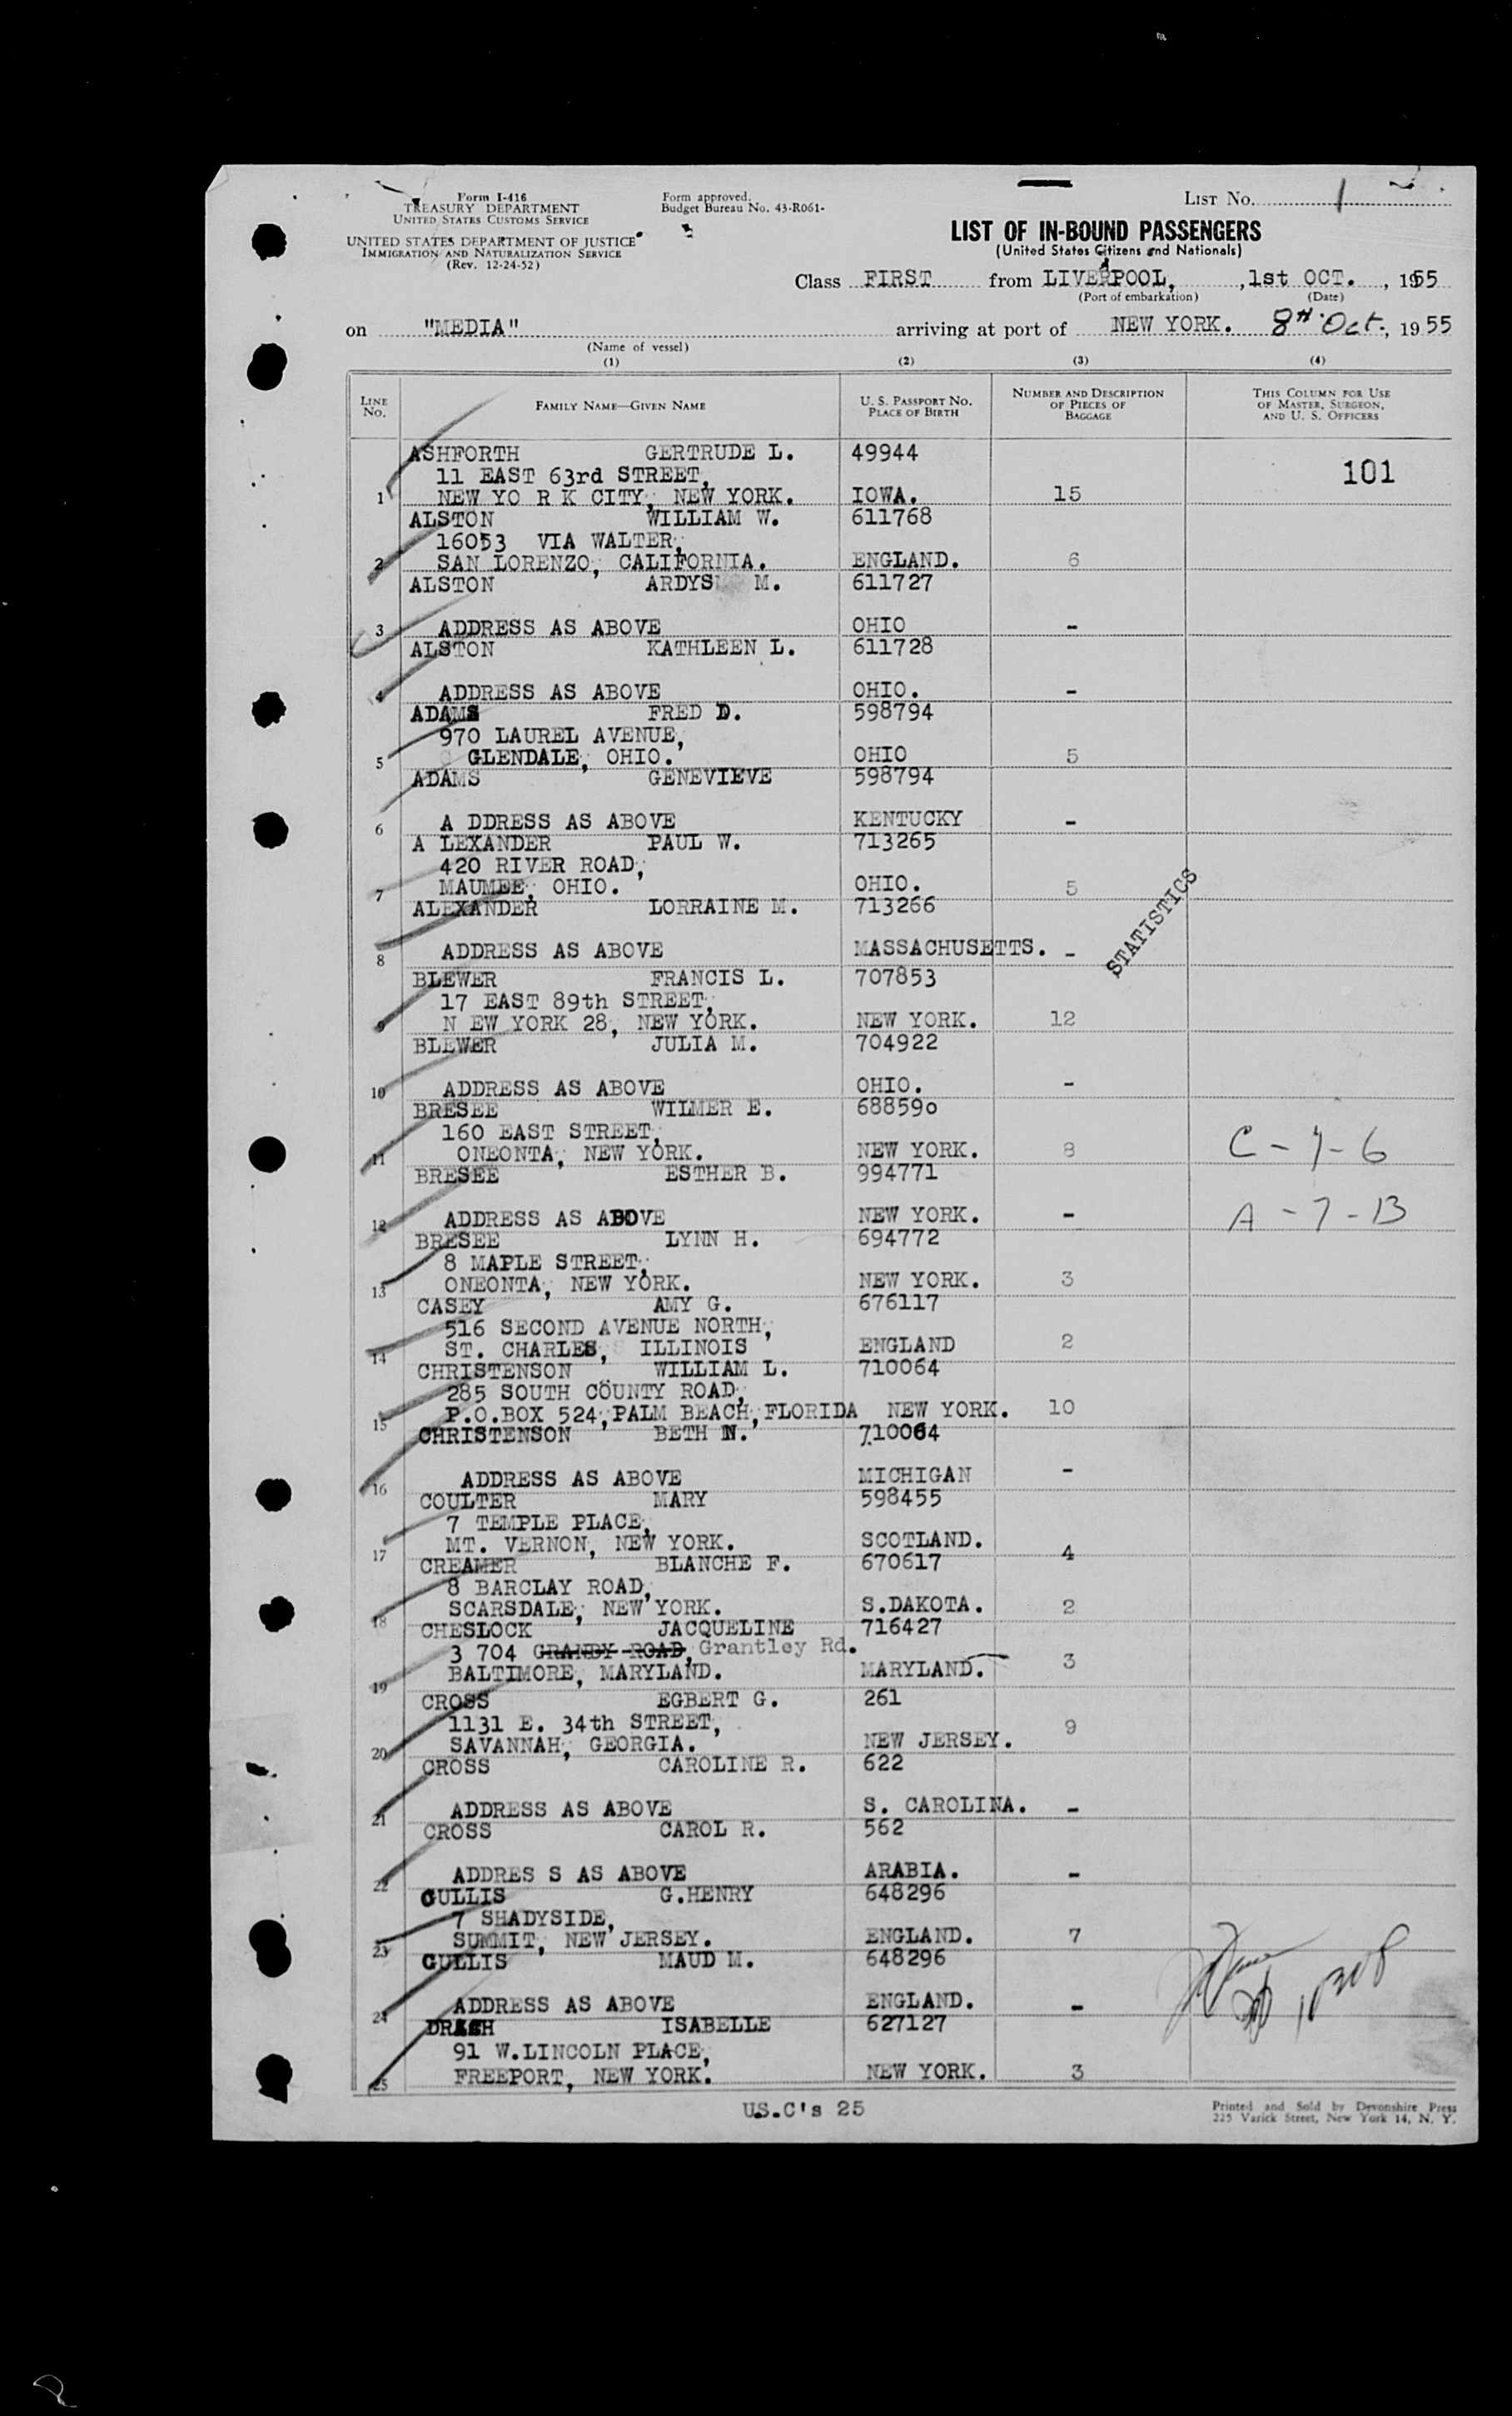 Form I-416
TREASURY DEPARTMENT
UNITED STATES CUSTOMS SERVICE
UNITED STATES DEPARTMENT OF JUSTICE
IMMIGRATION AND NATURALIZATION SERVICE
(Rev. 12-24-52)
Form approved.
Budget Bureau No. 43-R061-
LIST NO. 1
LIST OF IN-BOUND PASSENGERS
(United States Citizens and Nationals)
Class FIRST from LIVERPOOL, ,1st OCT. , 1955
(Port of embarkation) (Date)
on "MEDIA" arriving at port of NEW YORK. 8th Oct., 1955
(Name of vessel)
(1) (2) (3) (4)
LINE NO. FAMILY NAME—GIVEN NAME U. S. PASSPORT NO. PLACE OF BIRTH NUMBER AND DESCRIPTION OF PIECES OF BAGGAGE THIS COLUMN FOR USE OF MASTER, SURGEON, AND U. S. OFFICERS
ASHFORTH GERTRUDE L. 49944
11 EAST 63rd STREET, 101
1 NEW YO R K CITY, NEW YORK. IOWA. 15
ALSTON WILLIAM W. 611768
16053 VIA WALTER,
2 SAN LORENZO, CALIFORNIA. ENGLAND. 6
ALSTON ARDYS M. 611727
3 ADDRESS AS ABOVE OHIO -
ALSTON KATHLEEN L. 611728
4 ADDRESS AS ABOVE OHIO. -
ADAMS FRED D. 598794
970 LAUREL AVENUE,
5 GLENDALE, OHIO. OHIO 5
ADAMS GENEVIEVE 598794
6 A DDRESS AS ABOVE KENTUCKY -
A LEXANDER PAUL W. 713265
420 RIVER ROAD,
7 MAUMEE, OHIO. OHIO. 5
ALEXANDER LORRAINE M. 713266
STATISTICS
8 ADDRESS AS ABOVE MASSACHUSETTS. -
BLEWER FRANCIS L. 707853
17 EAST 89th STREET,
9 N EW YORK 28, NEW YORK. NEW YORK. 12
BLEWER JULIA M. 704922
10 ADDRESS AS ABOVE OHIO. -
BRESEE WILMER E. 688590
160 EAST STREET,
11 ONEONTA, NEW YORK. NEW YORK. 8 C-1-6
BRESEE ESTHER B. 994771
12 ADDRESS AS ABOVE NEW YORK. - A-7-B
BRESEE LYNN H. 694772
8 MAPLE STREET,
13 ONEONTA, NEW YORK. NEW YORK. 3
CASEY AMY G. 676117
516 SECOND AVENUE NORTH,
14 ST. CHARLES, ILLINOIS ENGLAND 2
CHRISTENSON WILLIAM L. 710064
285 SOUTH COUNTY ROAD,
15 P.O.BOX 524,PALM BEACH,FLORIDA NEW YORK. 10
CHRISTENSON BETH N. 710064
16 ADDRESS AS ABOVE MICHIGAN -
COULTER MARY 598455
7 TEMPLE PLACE,
17 MT. VERNON, NEW YORK. SCOTLAND. 4
CREAMER BLANCHE F. 670617
8 BARCLAY ROAD,
18 SCARSDALE, NEW YORK. S.DAKOTA. 2
CHESLOCK JACQUELINE 716427
3 704 GRANBY ROAD, Grantley Rd.
19 BALTIMORE, MARYLAND. MARYLAND. 3
CROSS EGBERT G. 261
1131 E. 34th STREET,
20 SAVANNAH, GEORGIA. NEW JERSEY. 9
CROSS CAROLINE R. 622
21 ADDRESS AS ABOVE S. CAROLINA. -
CROSS CAROL R. 562
22 ADDRES S AS ABOVE ARABIA. -
GULLIS G.HENRY 648296
7 SHADYSIDE,
23 SUMMIT, NEW JERSEY. ENGLAND. 7
GULLIS MAUD M. 648296
24 ADDRESS AS ABOVE ENGLAND. -
ISABELLE 627127
91 W.LINCOLN PLACE,
25 FREEPORT, NEW YORK. NEW YORK. 3
U.S.C's 25
Printed and Sold by Devonshire Press
225 Varick Street, New York 14, N. Y.